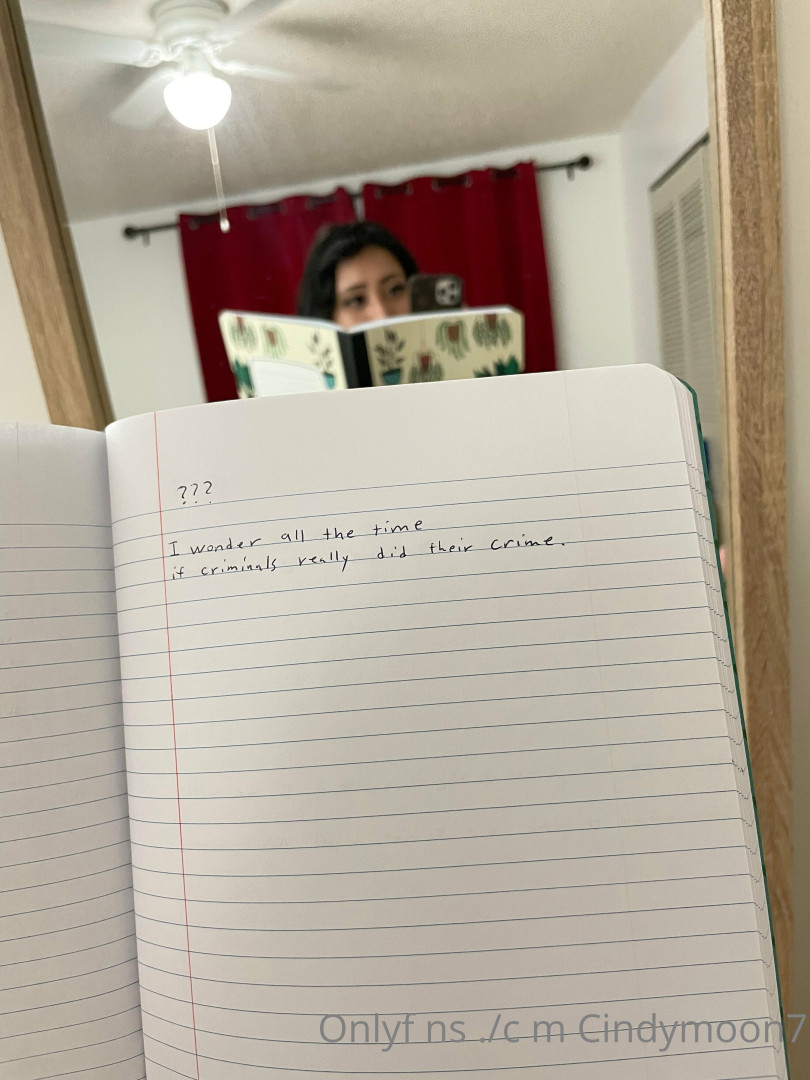 ???
I wonder all the time
if criminals really did their crime.
Onlyf ns ./c m Cindymoon7